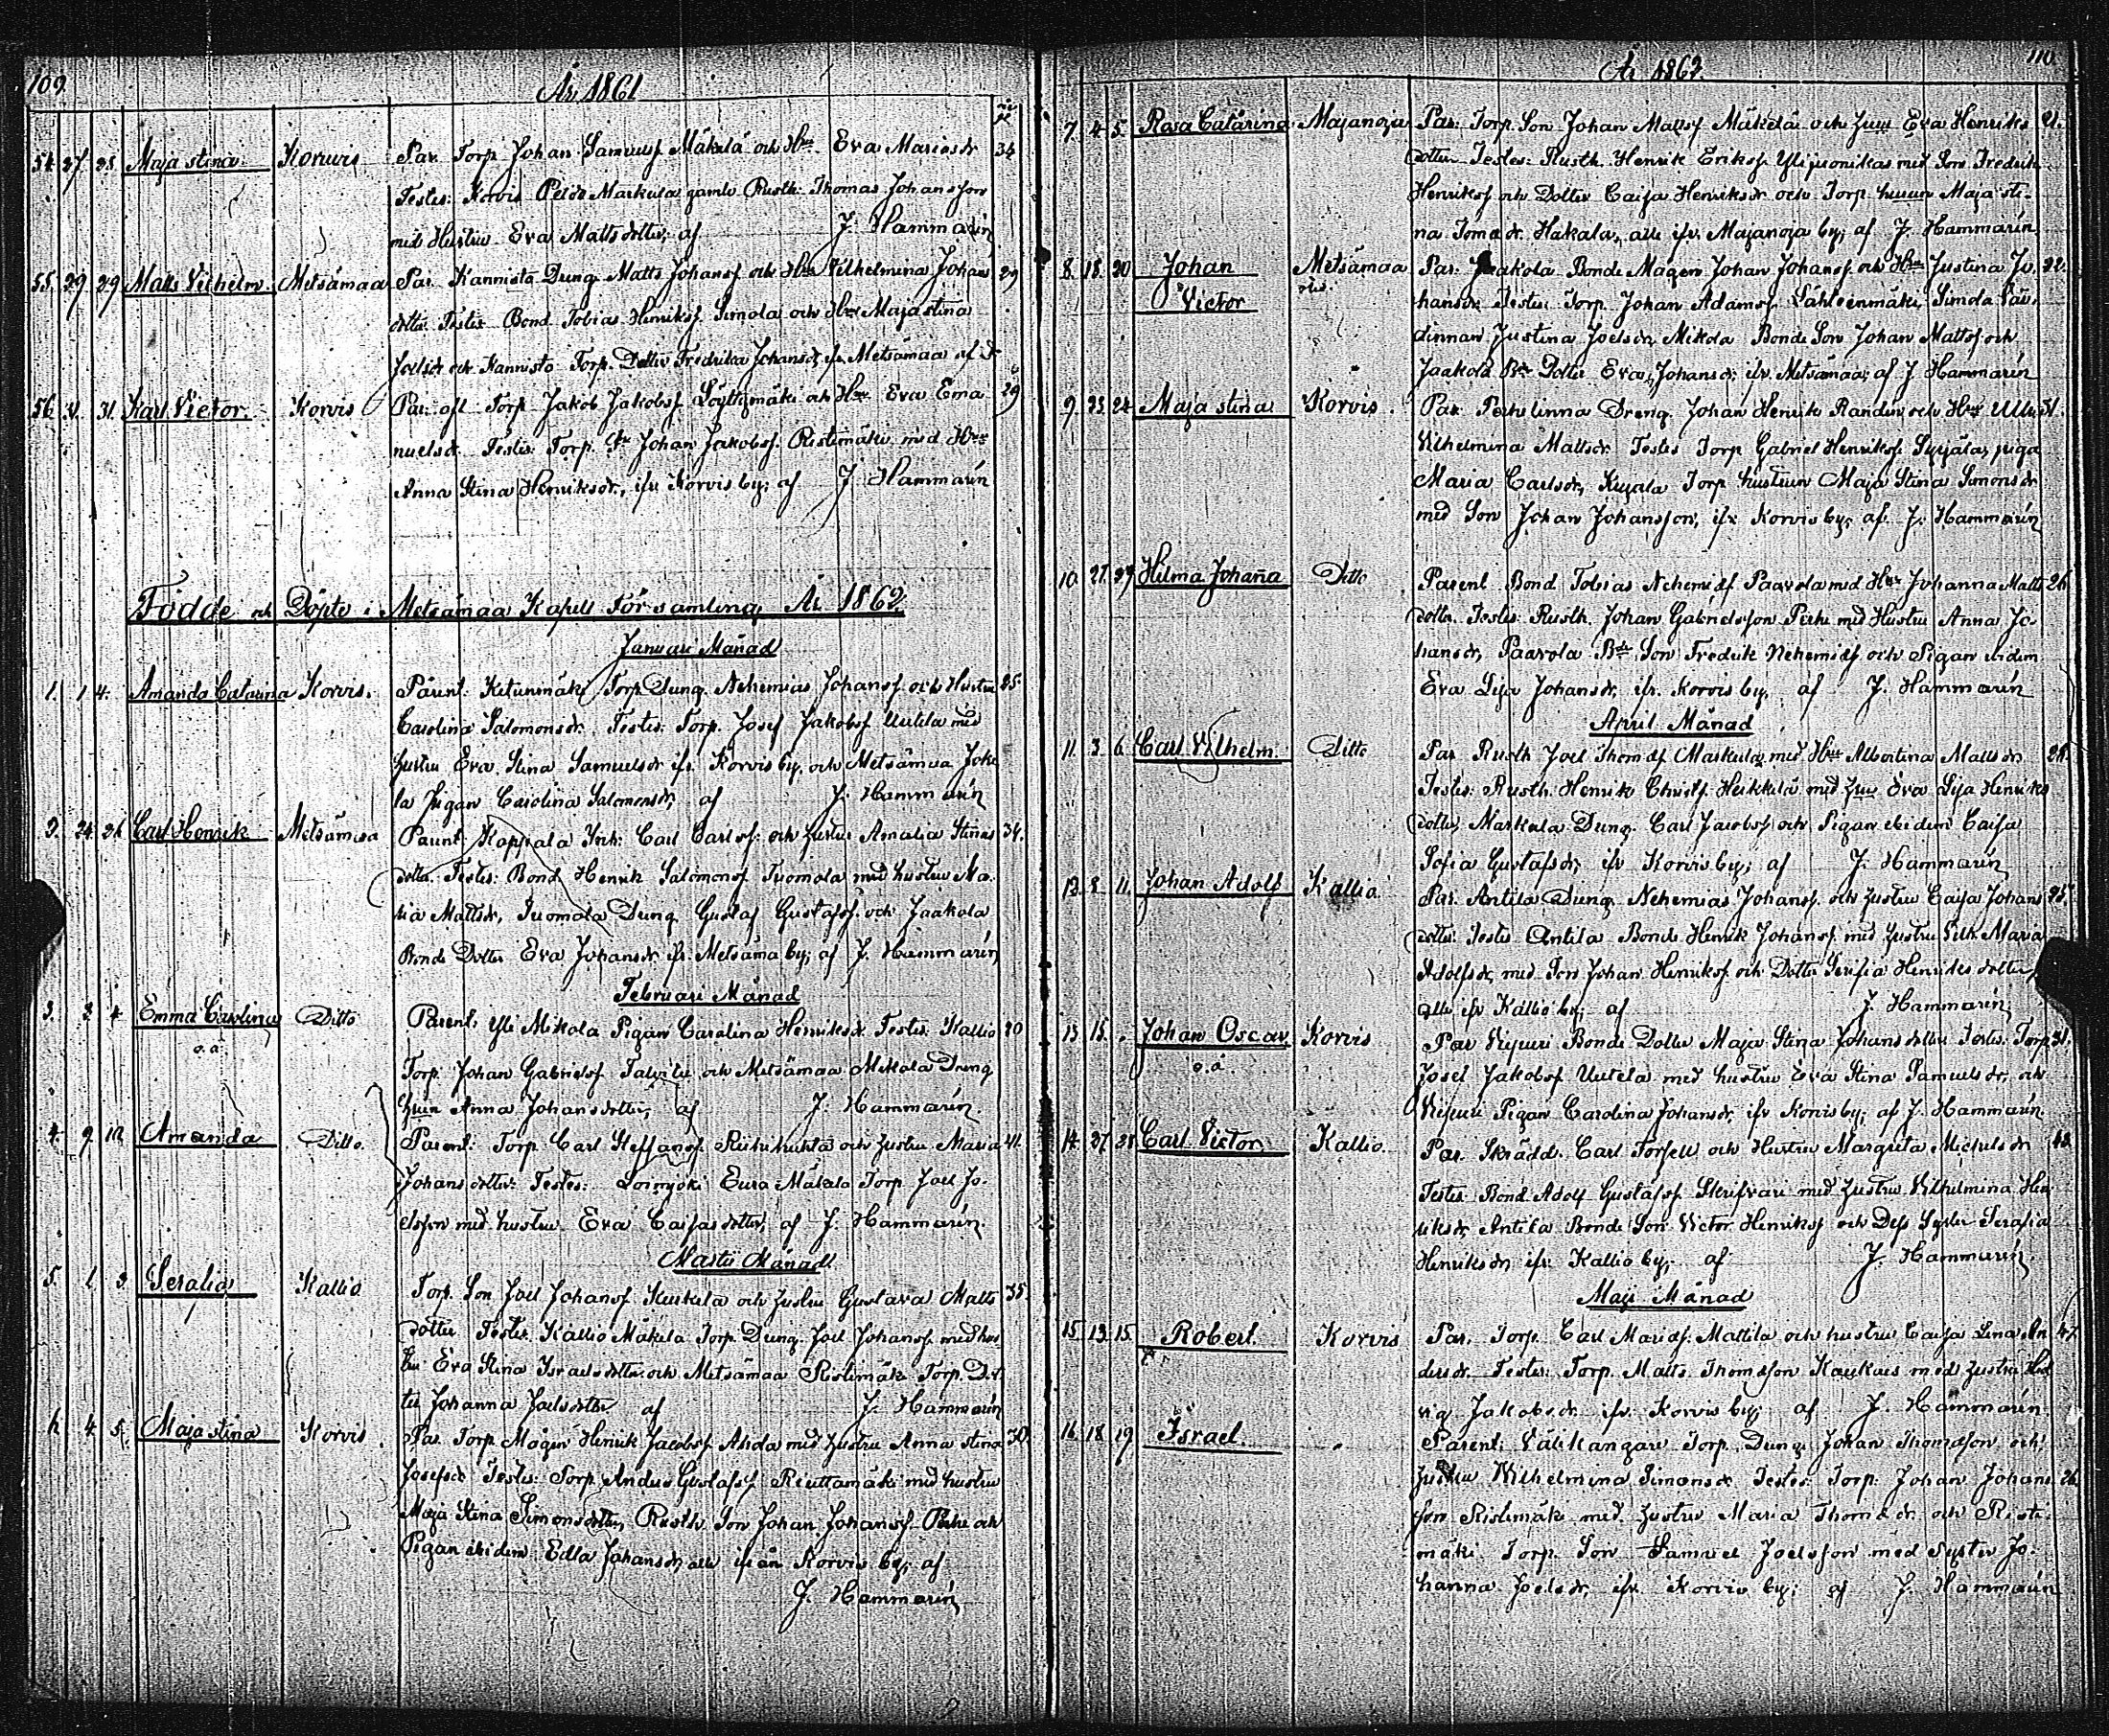 109.
År 1861
54. 27. 28. Maja Stina. Korwis Par. Torp. Johan Samuelsf. Mäkelä och Hru. Eva Mariasdr 34
Testes: Korvis Peldo Markula gamle Rusth. Thomas Johansson
med Hustru Eva Mattsdotter; af J. Hammarin
55. 29. 29 Matts Vilhelm. Metsämaa Par. Kannisto Dreng Matts Johansf. och Hru Vilhelmina Johans 29
dotter Testes Bond. Tobias Henriksf. Simola och Hru Maja Stina
Joelsdr och Kannisto Torp. Dotter Fredrika Johansdr, ifr. Metsämaa af
56. 31. Karl Victor. Korvis Par. afl. Torp. Jakob Jakobsf. Löyttymäki och Hru Eva Ema 29
nuelsdr. Testes: Torp. Johan Jakobsf. Ristimäki med Hru
Anna Stina Henriksdr., ifr. Korvis by; af J. Hammarin
Födde och Döpte i Metsämaa Kapell Församling År 1862
Januari Månad
1. 1. 4. Amanda Catarina Korvis. Parent: Ketunmäki Torp. Dreng. Nehemias Johansf. och Hustru 25
Carolina Salomonsdr. Testes. Torp. Josef Jakobsf. Uutela med
hustru Eva Stina Samuelsdr ifr. Korvis by, och Metsämaa Joke
la Pigan Carolina Salomonsdr, af J. Hammarin
2. 24. 26 Carl Henrik Metsämaa Parent: Kappala Inh: Carl Carlsf. och hustru Amalia Stinas 34.
dotter. Testes: Bond. Henrik Salomonsf. Tuomola med hustru Ma
ria Mattsdr, Tuomola Dreng Gustaf Gustafsf. och Jaakola
Bonde Dotter Eva Johansdr ifr. Metsämaa by; af J. Hammarin
Februari Månad
3. 3. 4 Emma Carolina Ditto Parent: Yli Mikola Pigan Carolina Henriksdr. Testes: Kallio 20
o.ä. Torp. Johan Gabrielsf. Talvitie och Metsämaa Mikola Dreng
hustru Anna Johansdotter, af J. Hammarin.
4. 9. 10. Amanda Ditto. Parent: Torp. Carl Steffansf. Riihihuhta och hustru Maria 41.
Johansdotter: Testes: Loimijoki Eura Mäkelä Torp. Joel Jo-
elsson med hustru Eva Caisasdotter, af J. Hammarin.
Martii Månad
5. 1. 3. Serafia Kallio Torp. Son Joel Johansf. Keukela och hustru Gustava Matts 35.
dotter Testes. Kallio Mäkelä Torp. Dreng. Joel Johansf. med hus
tru Eva Stina Israelsdotter och Metsämaa Ristimäki Torp. Dot
ter Johanna Joelsdotter af J. Hammarin
6. 4. 5. Maja Stina Korvis. Par. Torp. Mågen Henrik Jacobsf. Ahola med hustru Anna Stina 30.
Josefsdr Testes: Torp. Anders Gustafsf. Reuttamäki med hustru
Maja Stina Simonsdotter, Rusth. Son Johan Johansf. Pirhe och
Pigan ibidem Edla Johansdr, alle ifrån Korvis by; af
J. Hammarin
110.
År 1862.
7. 4. 5. Rosa Catarina. Majanoja Par: Torp. Son Johan Mattsf. Mäkelä och hustru Eva Henriks 21.
dotter Testes: Rusth. Henrik Eriksf. Ylijuonikas med Son Fredrik
Henriksf. och Dotter Caisa Henriksdr. och Torp. hustrun Maja Sti-
na Tomasdr. Hakala, alle ifr. Majanoja by; af J. Hammarin
8. 18. 20 Johan Victor Metsämaa Par: Jaakola Bonde Mågen Johan Johansf. och Hru Justina Jo. 22.
hansdr. Testes: Torp. Johan Adamsf. Lähteenmäki, Simola Vär
dinnan Justina Joelsdr, Mikola Bonde Son Johan Mattsf. och
Jaakola Bde Dotter Eva Johansdr, ifr. Metsämaa; af J. Hammarin
9. 23. 24. Maja Stina Korvis. Par. Perhelinna Dreng. Johan Henrik Randen och Hru Ulla 31.
Vilhelmina Mattsdr. Testes Torp. Gabriel Henriksf. Syrjälä, piga
Maria Carlsdr, Kujala Torp. hustrun Maja Stina Simonsdr
med Son Johan Johansson, ifr. Korvis by; af J. Hammarin
10. 27. 29 Hilma Johanna Ditto Parent. Bond. Tobias Nehemisf. Paavola med Hru Johanna Matts 26.
dotter. Testes: Rusth. Johan Gabrielsson Pirhe med Hustru Anna Jo-
hansdr, Paavola Bde Son Fredrik Nehemisf och Pigan ibidem
Eva Lisa Johansdr, ifr. Korvis by, af J. Hammarin
April Månad
11. 3. 6. Carl Vilhelm. Ditto Par. Rusth. Joel Thomasf Markula, med Hru Albertina Mattsdr 28.
Testes: Rusth. Henrik Christ. Heikkilä med hustru Eva Lisa Henriks
dotter, Markula Dreng. Carl Jacobsf och Pigan ibidem Caisa
Sofia Gustafsdr, ifr. Korvis by; af J. Hammarin
12. 8. 11. Johan Adolf Kallio Par. Antila Dreng. Nehemias Johansf. och hustru Caisa Johans 25.
dotter. Testes Antila Bonde Henrik Johansf. med hustru Vilh. Maria
Adolfsdr, med Son Johan Henriksf och Dotter Serafia Henriksdotter
alle ifr Kallio by; af J. Hammarin
13. 15. Johan Oscar Korvis Par Vipuri Bonde Dotter Maja Stina Johansdotter Testes: Torp. 31.
o.ä. Josef Jakobsf Uutela med hustru Eva Stina Samuelsdr, och
Vipuri Pigan Carolina Johansdr, ifr. Korvis by; af J. Hammarin.
14. 27. 28 Carl Victor. Kallio. Par. Skrädd. Carl Forsell och Hustru Margreta Michelsdr 42.
Testes Bond. Adolf Gustafsf Skrifvari med hustru Vilhelmina Hen
riksdr, Antila Bonde Son Victor Henriksf och Dess Syster Serafia
Henriksdr, ifr. Kallio by, af J. Hammarin
Maji Månad
15. 13. 15. Robert. Korvis Par. Torp. Carl Mariasf. Mattila och hustru Caisa Lena An 47.
dersdr. Testes: Torp. Matts Thomasson Kaukais med hustru Hed
vig Jakobsdr ifr. Korvis by; af J. Hammarin
16. 18. 19 Israel. Parent: Välikangare Torp. Dreng. Johan Thomasson och
hustru Wilhelmina Simonsdr Testes: Torp. Johan Johans 26.
son Ristimäki med hustru Maria Thomasdr och Risti-
mäki Torp. Son Samuel Joelsson med Syster Jo-
hanna Joelsdr, ifr. Korvis by; af J. Hammarin